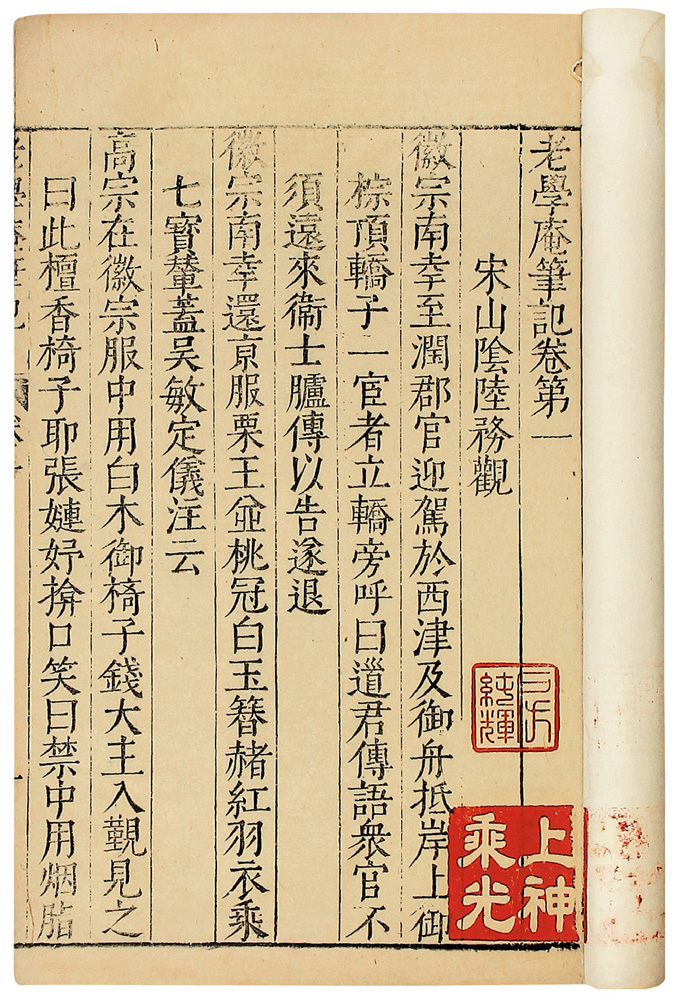 老學庵筆記卷第一
宋山陰陸務觀
徽宗南幸至潤郡官迎駕於西津及御舟抵岸上御
棕頂轎子一宦者立轎旁呼曰道君傳語衆官不
須遠來衞士臚傳以告遂退
徽宗南幸還亰服栗王並桃冠白玉簪赭紅羽衣乘
七寳輦蓋吳敏定儀注云
高宗在徽宗服中用白木御椅子錢大主入覲見之
曰此檀香椅子耶張婕妤揜口笑曰禁中用烟脂
純輝
上神
乘光